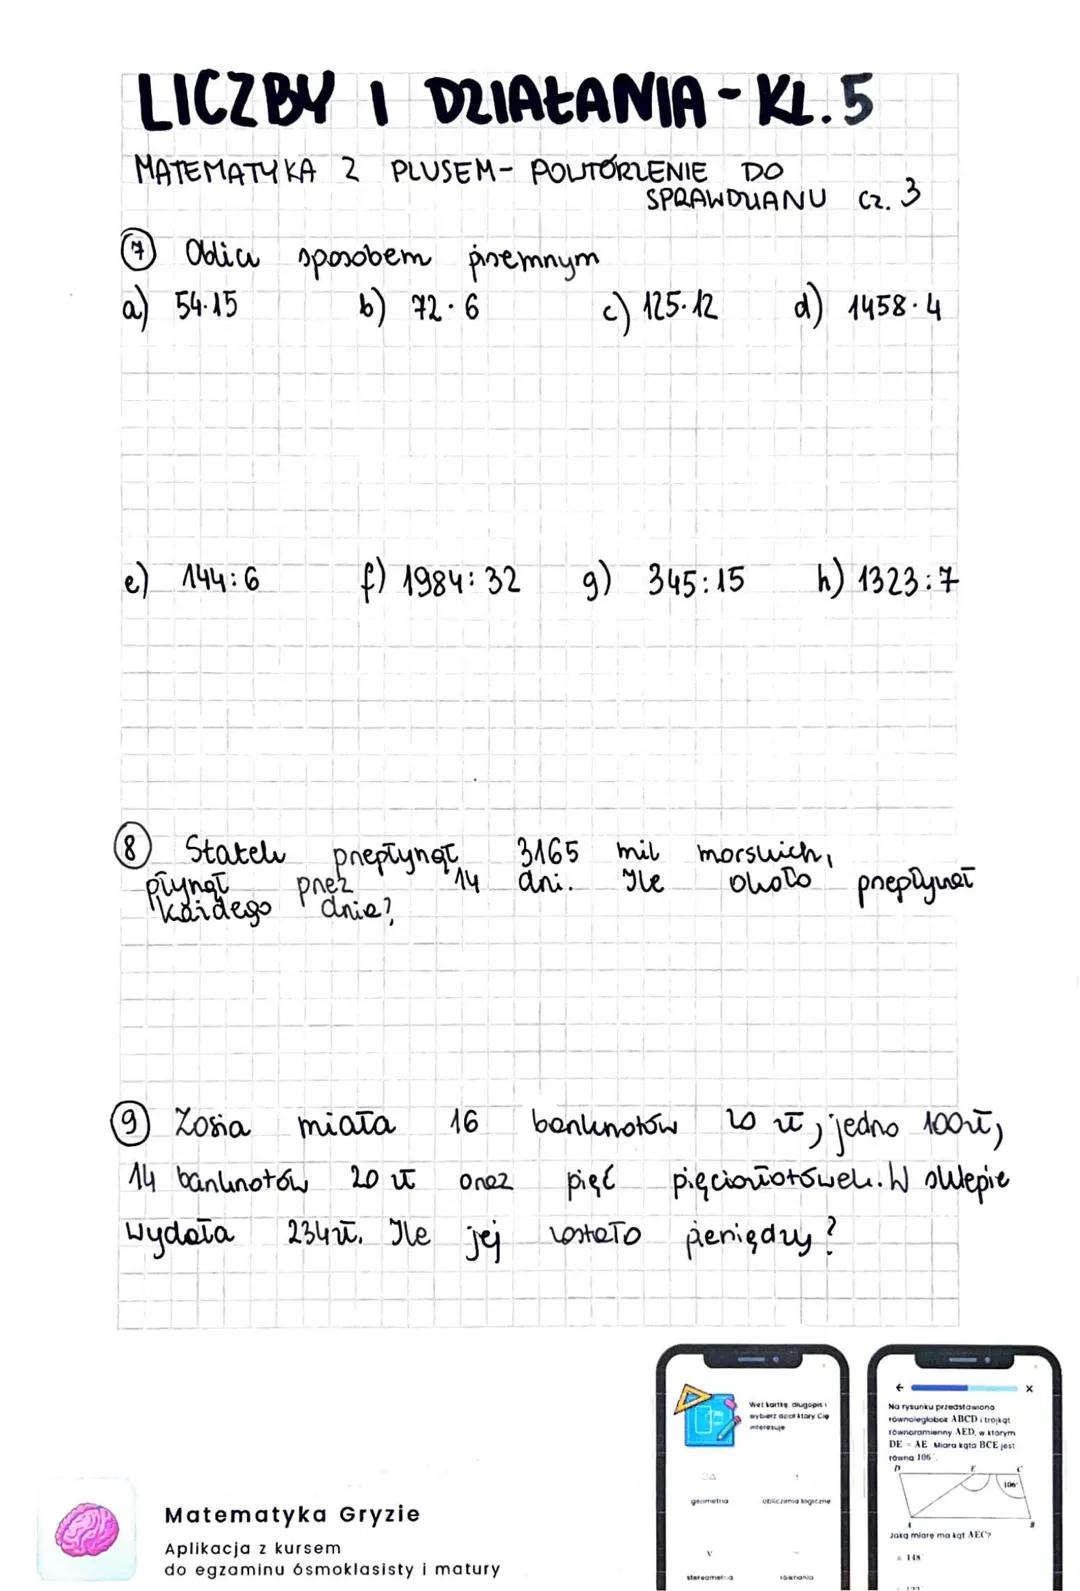 LICZBY I DZIAŁANIA - KL. 5
MATEMATYKA Z PLUSEM - POWTÓRZENIE DO
SPRAWDZIANU cz. 3
7 Oblicz sposobem pisemnym
a) 54·15 b) 72·6 c) 125·12 d) 1458·4
e) 144:6 f) 1984:32 g) 345:15 h) 1323:7
8 Statek przepłynął 3165 mil morskich,
płynął przez 14 dni. Ile około przepłynął
każdego dnia?
9 Zosia miała 16 banknotów 20 zł, jedno 100zł,
14 banknotów 20 zł oraz pięć pięciozłotówek. W sklepie
wydała 234zł. Ile jej zostało pieniędzy?
Weź kartkę, długopis i
wybierz dział który Cię
interesuje
geometria obliczenia logiczne
stereometria równania
Na rysunku przedstawiono
równoległobok ABCD i trójkąt
równoramienny AED, w którym
DE = AE Miara kąta BCE jest
równa 106°.
D E C
106°
A B
Jaką miarę ma kąt AEC?
A. 148°
Matematyka Gryzie
Aplikacja z kursem
do egzaminu ósmoklasisty i matury